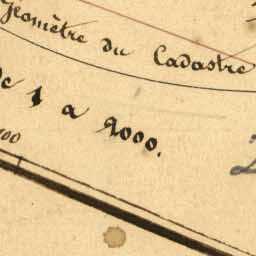 Géomètre du Cadastre
de 1 a 2000.